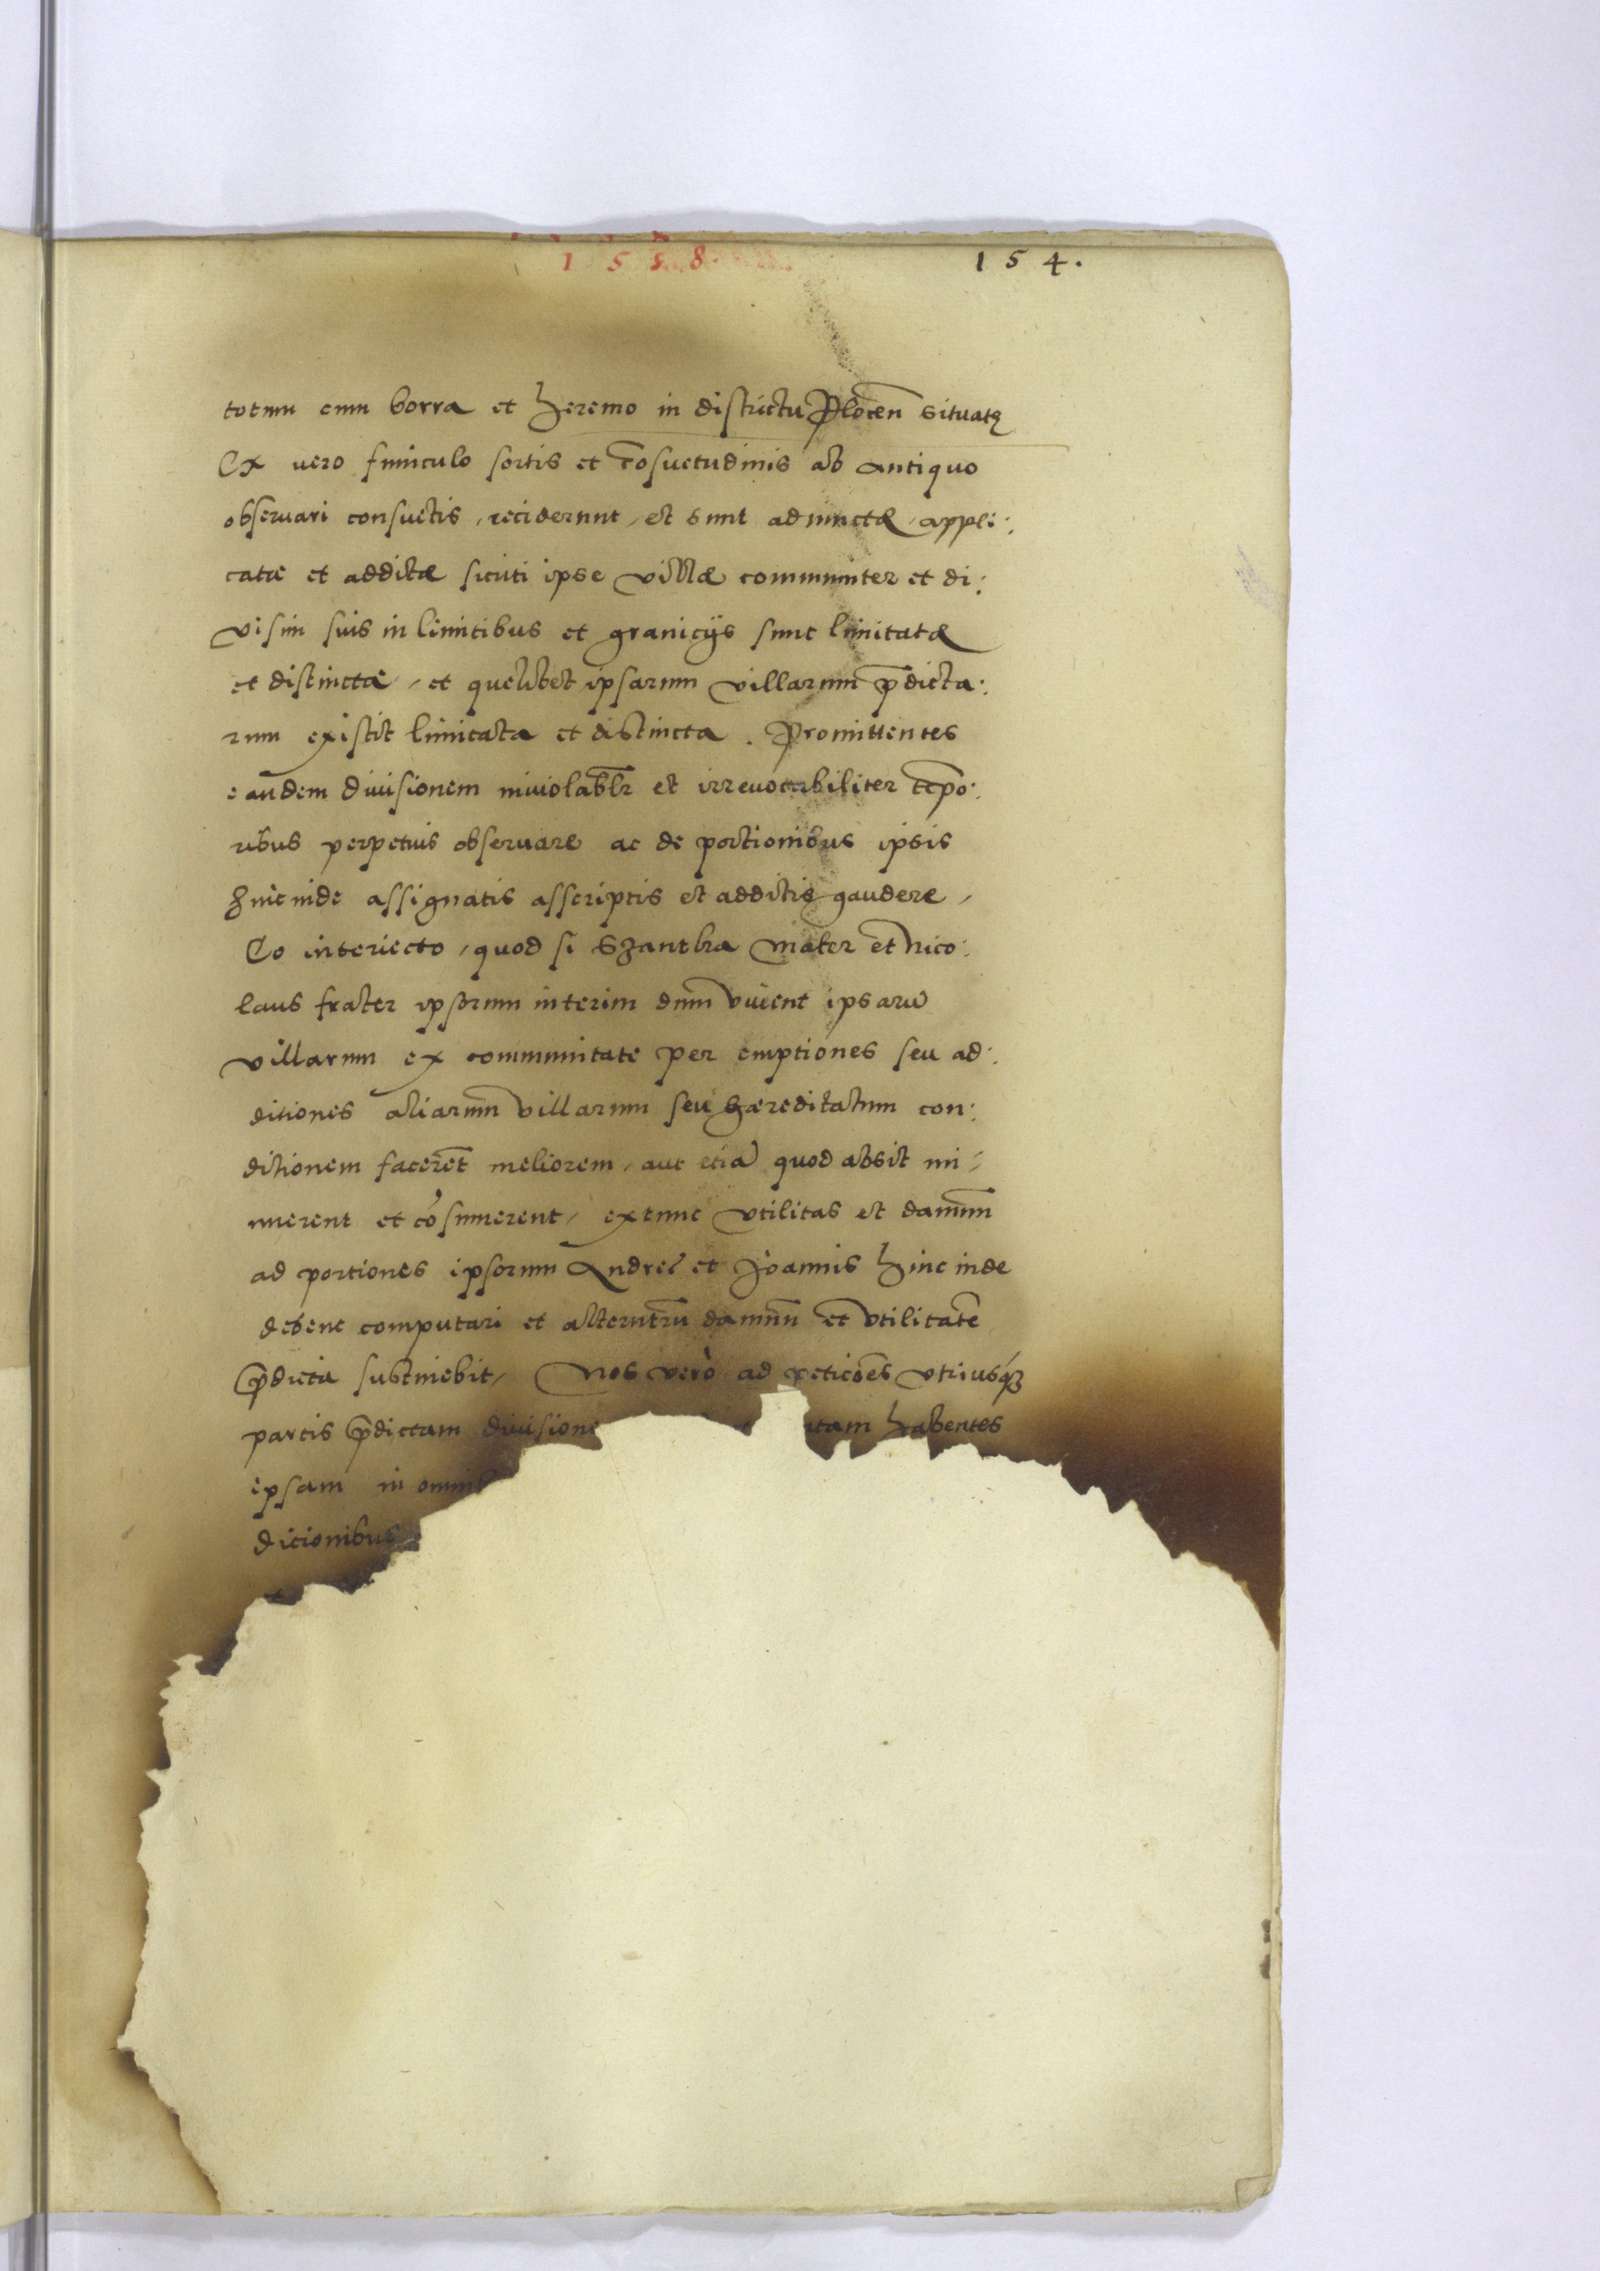 1558. 154.
totum cum borra et heremo in districtu Plocen̄ situatę
Ex vero funiculo sortis et cōsuetudinis ab antiquo
observari consuetis, reciderunt, et sunt adiunctæ, appli:
catæ et additæ sicuti ipse villæ communiter et di:
visim suis in limitibus et granicijs sunt limitatæ
et distinctæ, et quelibet ipsarum villarum p̄dicta:
rum existit limitata et distincta. Promittentes
eandem divisionem inviolablr̄ et irrevocabiliter tēpo:
ribus perpetuis observare ac de portionibus ipsis
hincinde assignatis asscriptis et additis gaudere,
Eo interiecto, quod si Szantbra mater et Nico:
laus frater ipsorum interim dum viuent ipsarū
villarum ex communitate per emptiones seu ad:
ditiones aliarum villarum seu hæreditatum con:
ditionem facerēt meliorem, aut etiā quod absit mi:
nuerent et cōsumerent, extunc vtilitas et damnum
ad portiones ipsorum Andreę et Joannis hinc inde
debent computari et alterutrū damnū et vtilitatē
p̄dicta sustinebit, Nos verò ad peticōēs vtriusq́ꝫ
partis p̄dictam divisione tam habentes
ipsam in omnib
dicionibus